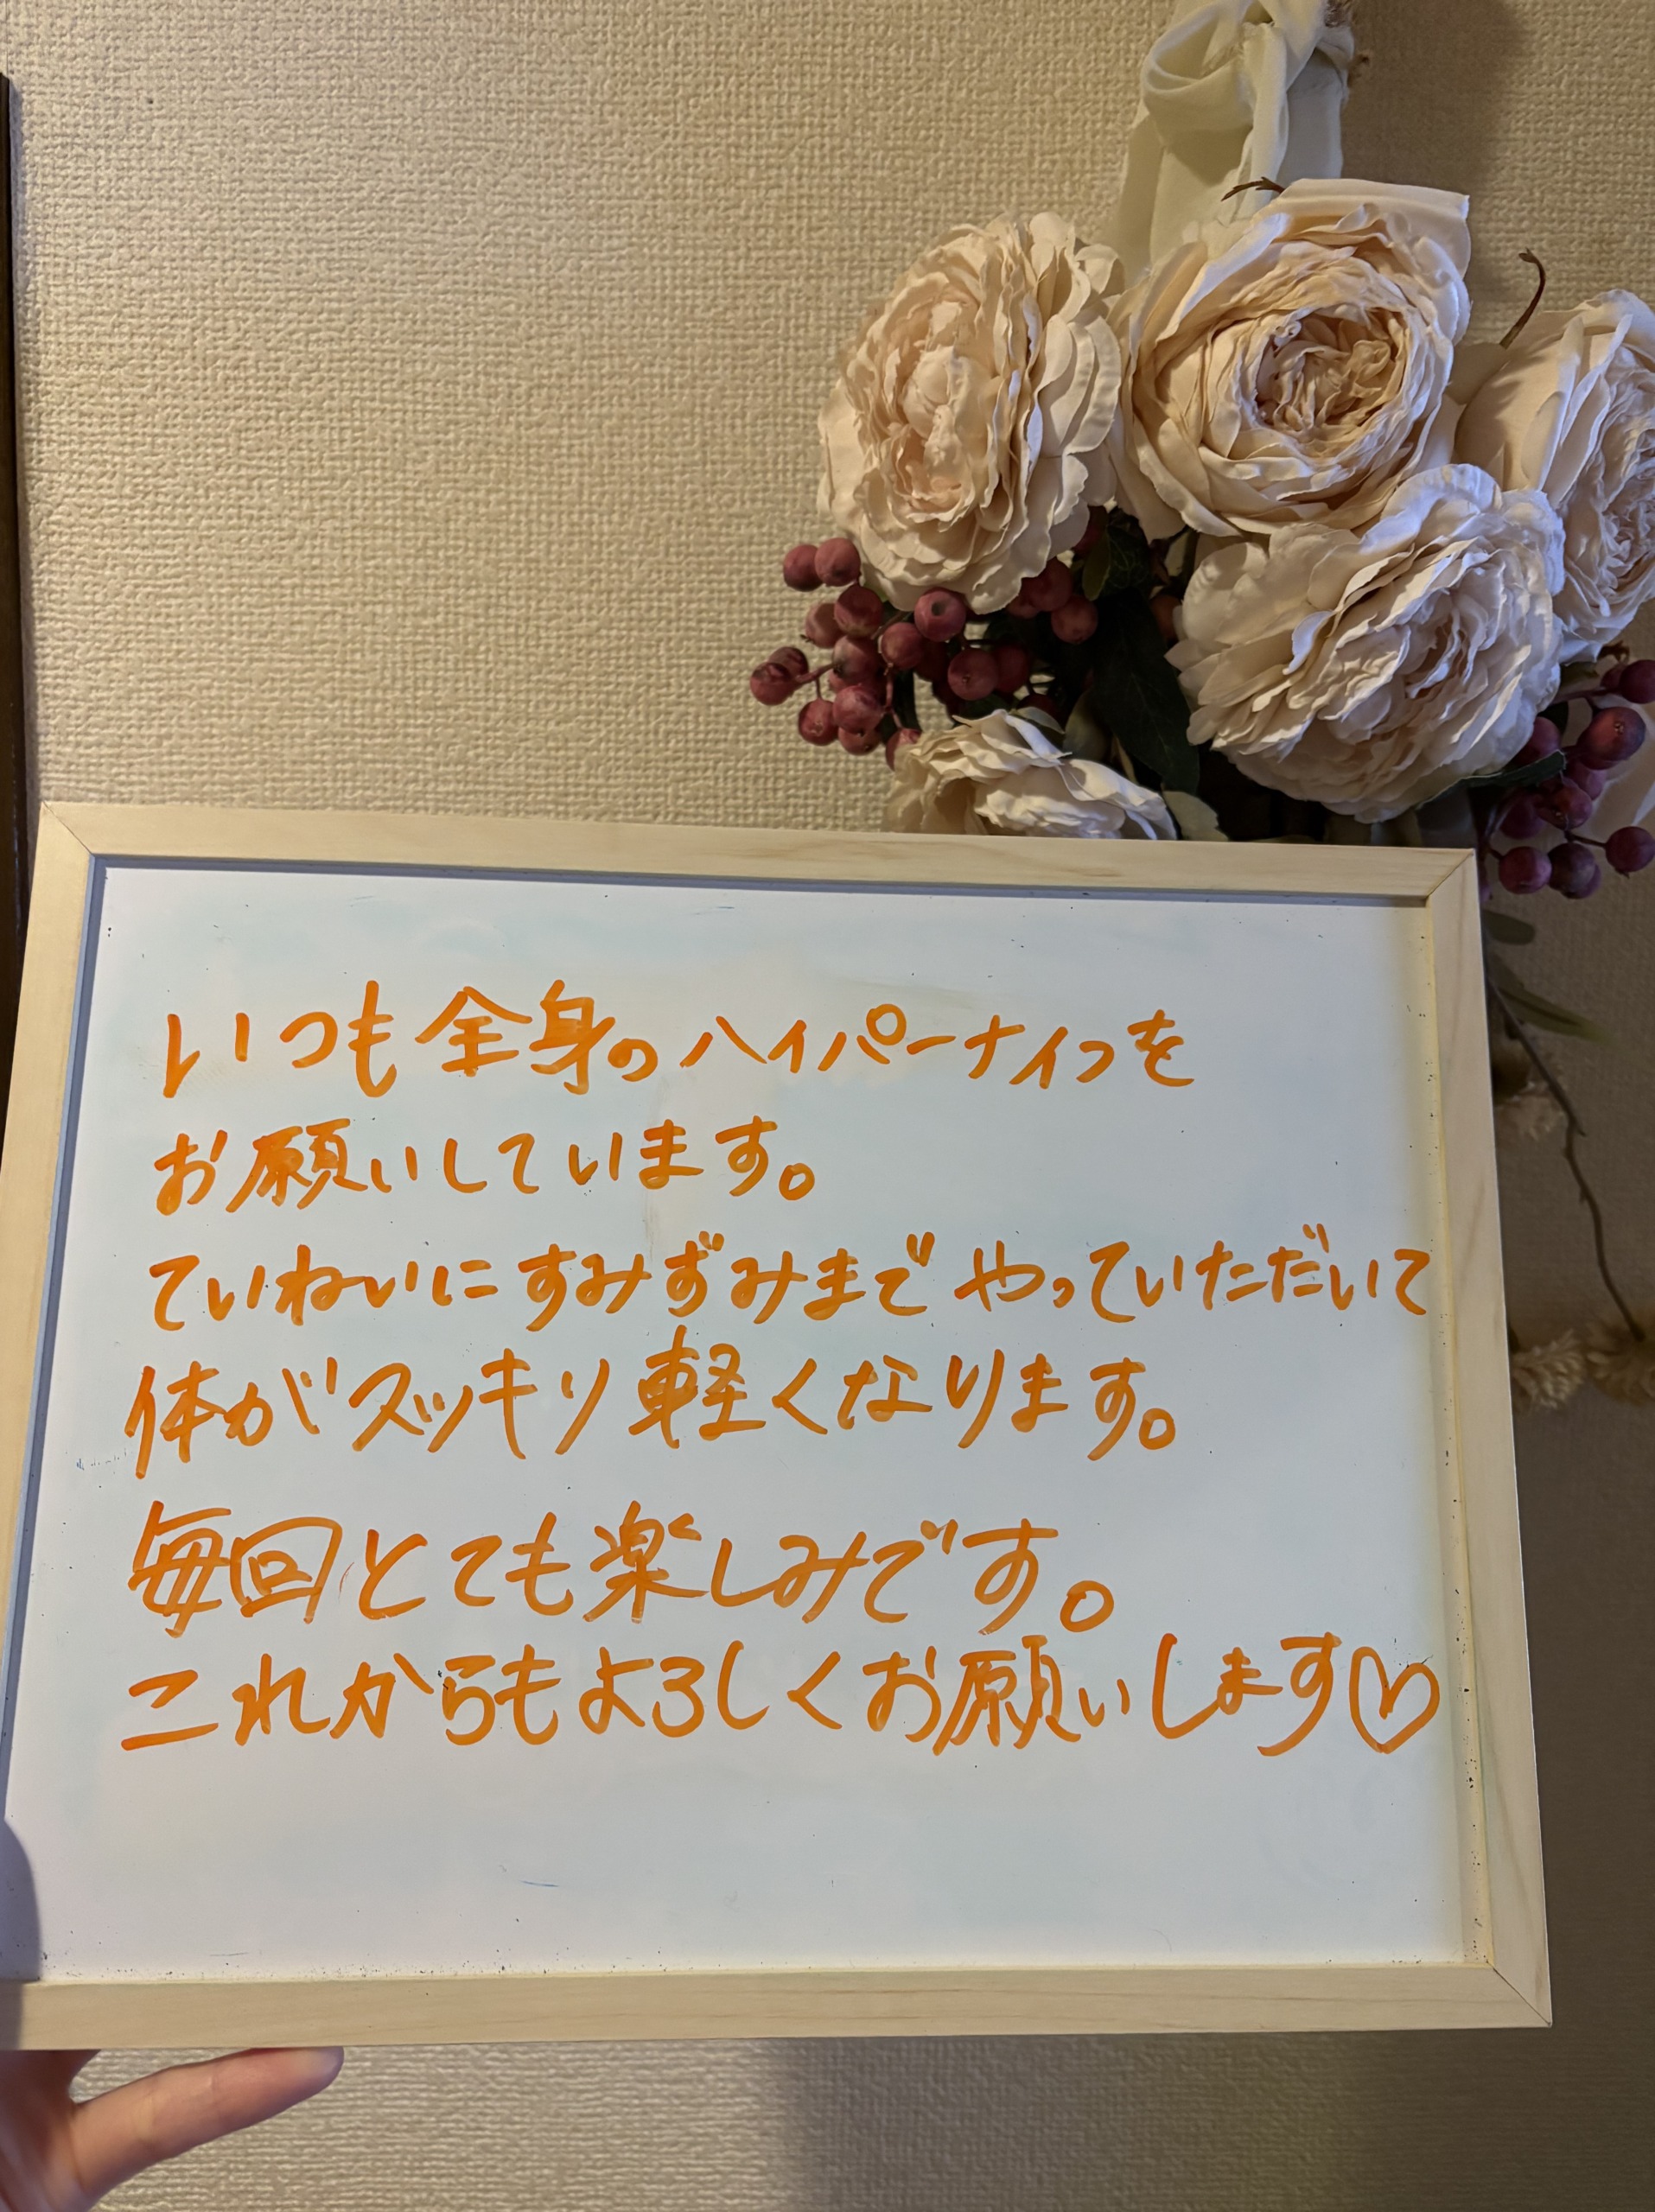 いつも全身のハイパーナイフを
お願いしています。
ていねいにすみずみまでやっていただいて
体がスッキリ軽くなります。
毎回とても楽しみです。
これからもよろしくお願いします♡